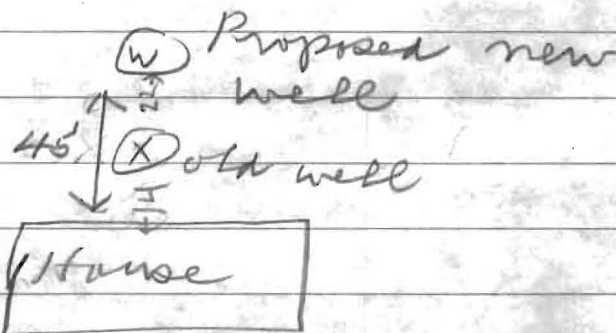 W Proposed new
well
45'
X old well
House